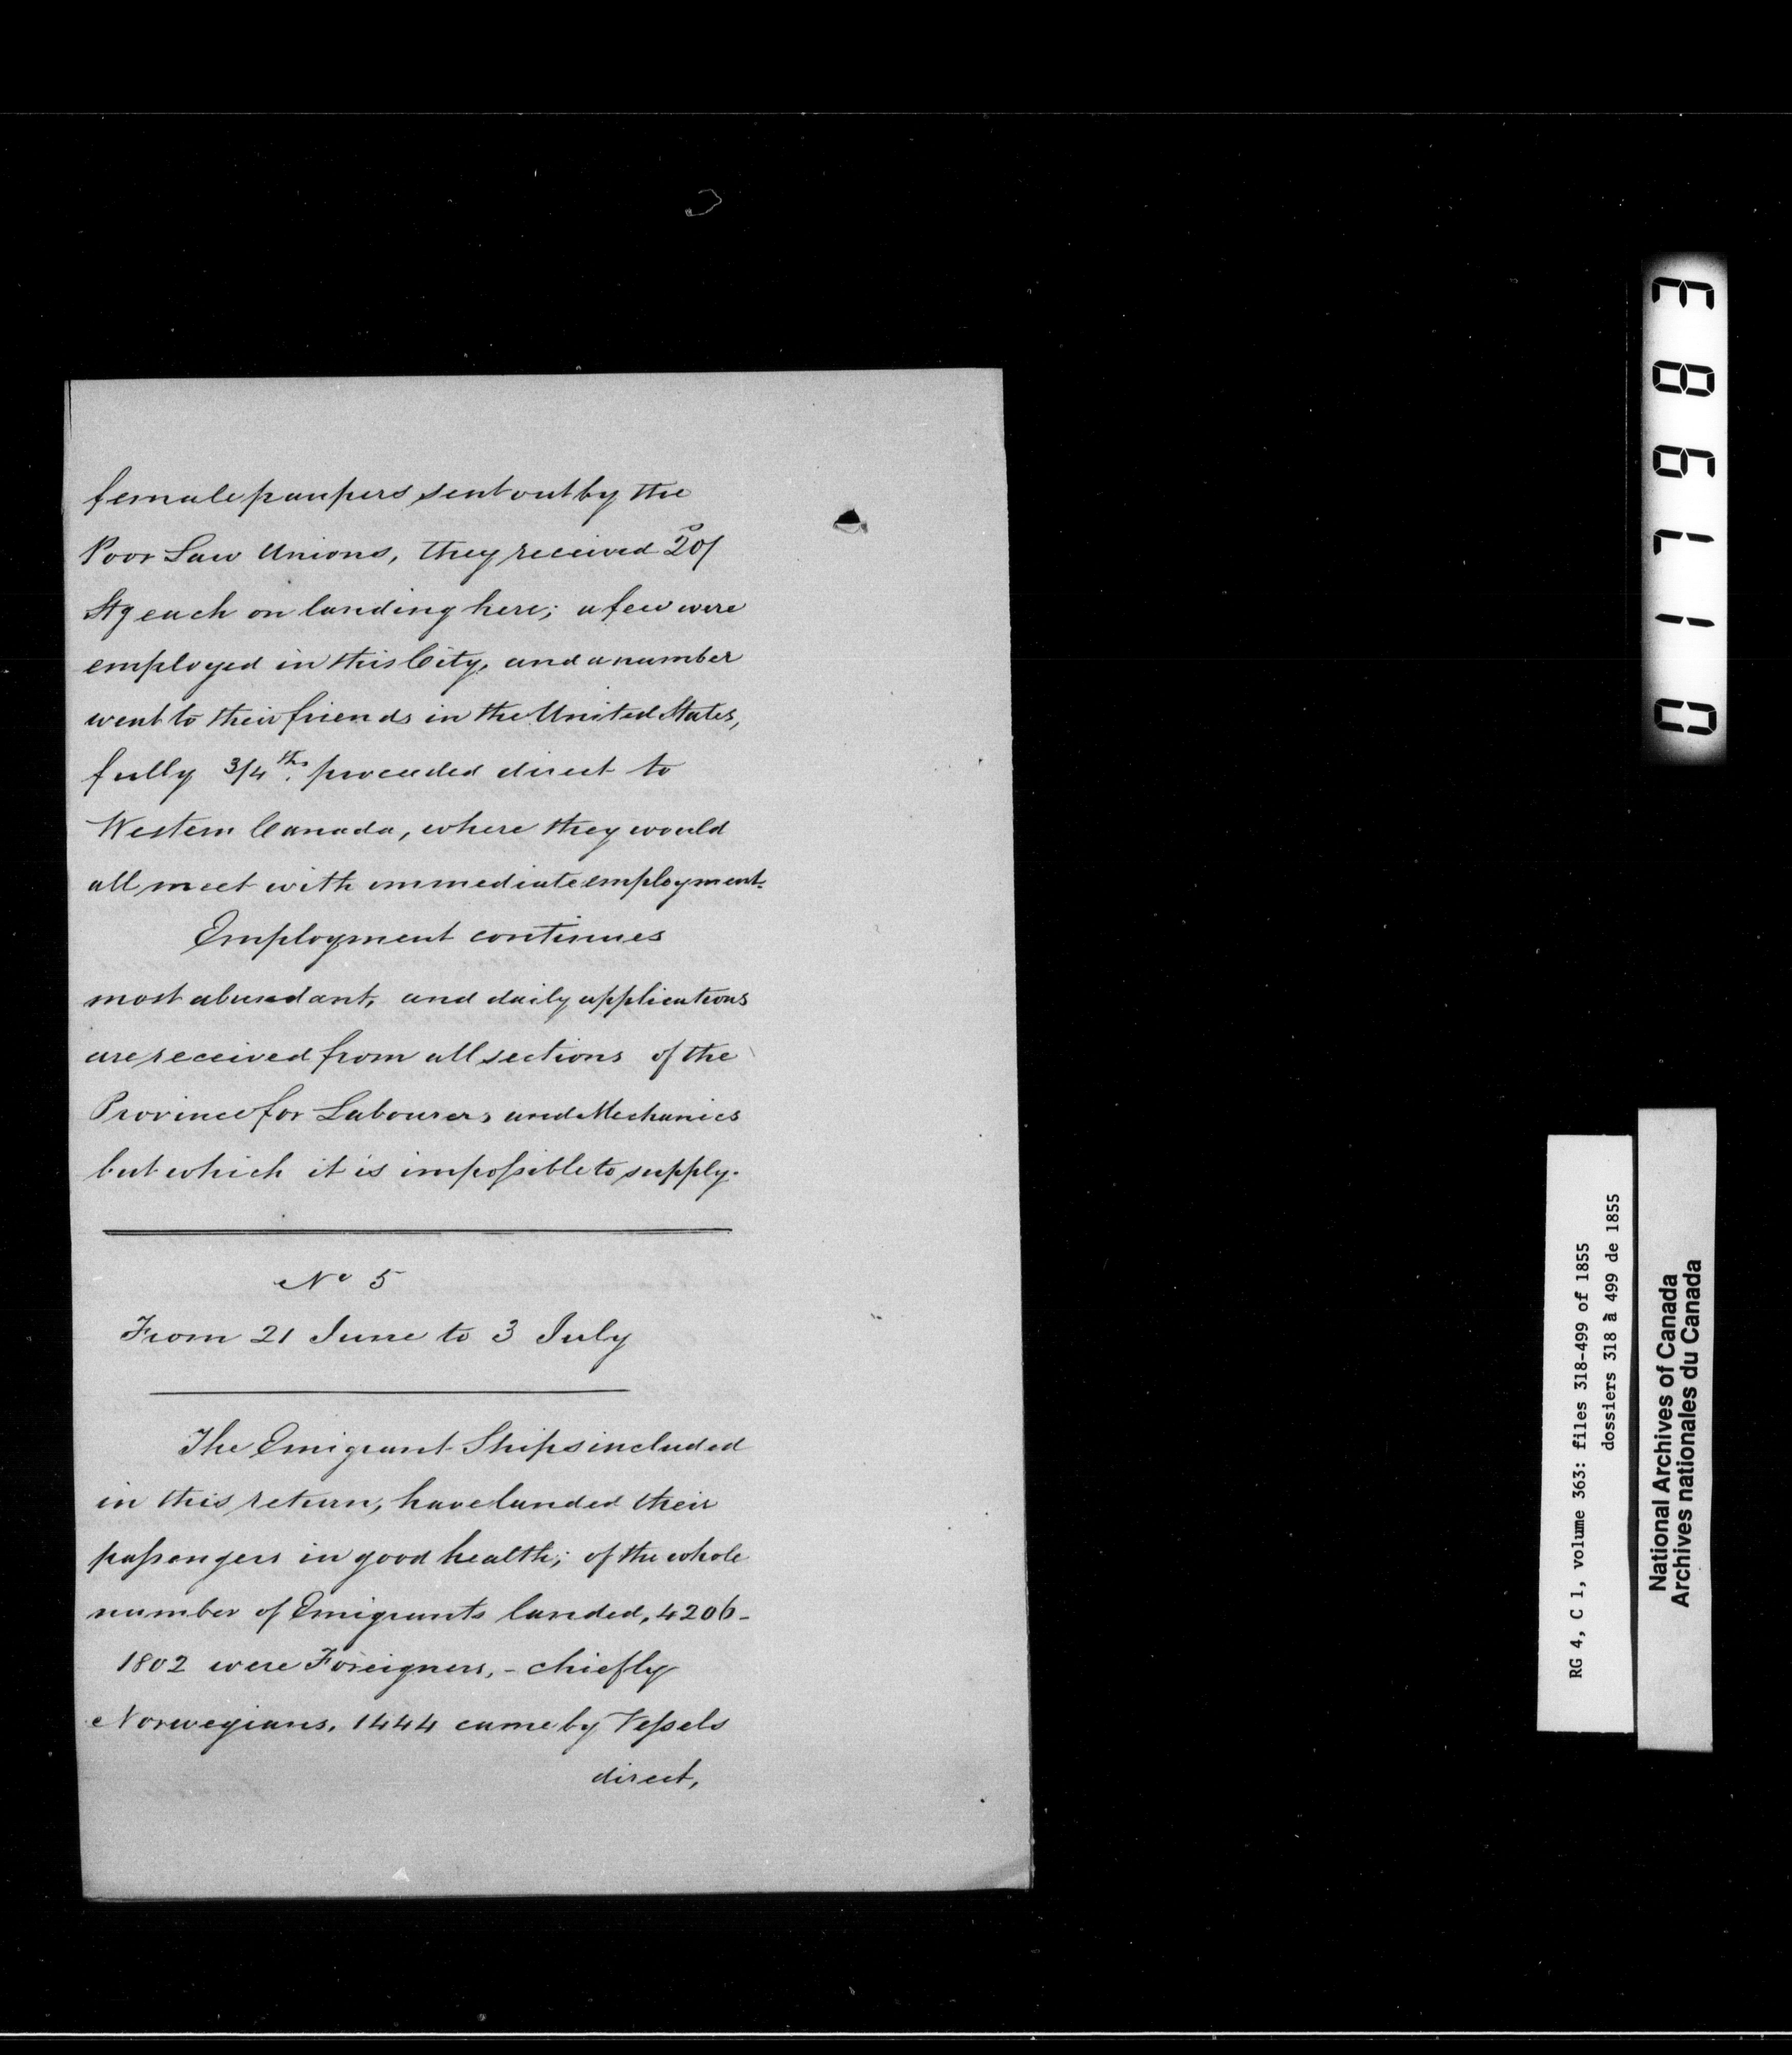 female paupers sent out by the
Poor Law Unions, they received 20/
Stg each on landing here; a few were
employed in this City, and a number
went to their friends in the United States,
fully 3/4ths. proceeded direct to
Western Canada, where they would
all meet with immediate employment.
Employment continues
most abundant, and daily applications
are received from all sections of the
Province for Labourers and Mechanics
but which it is impossible to supply.
No 5
From 21 June to 3 July
The Emigrant Ships included
in this return, have landed their
passengers in good health; of the whole
number of Emigrants landed, 4206-
1802 were Foreigners, - chiefly
Norwegians. 1444 came by Vessels
direct,
011963
RG 4, C 1, volume 363: files 318-499 of 1855
dossiers 318 à 499 de 1855
National Archives of Canada
Archives nationales du Canada